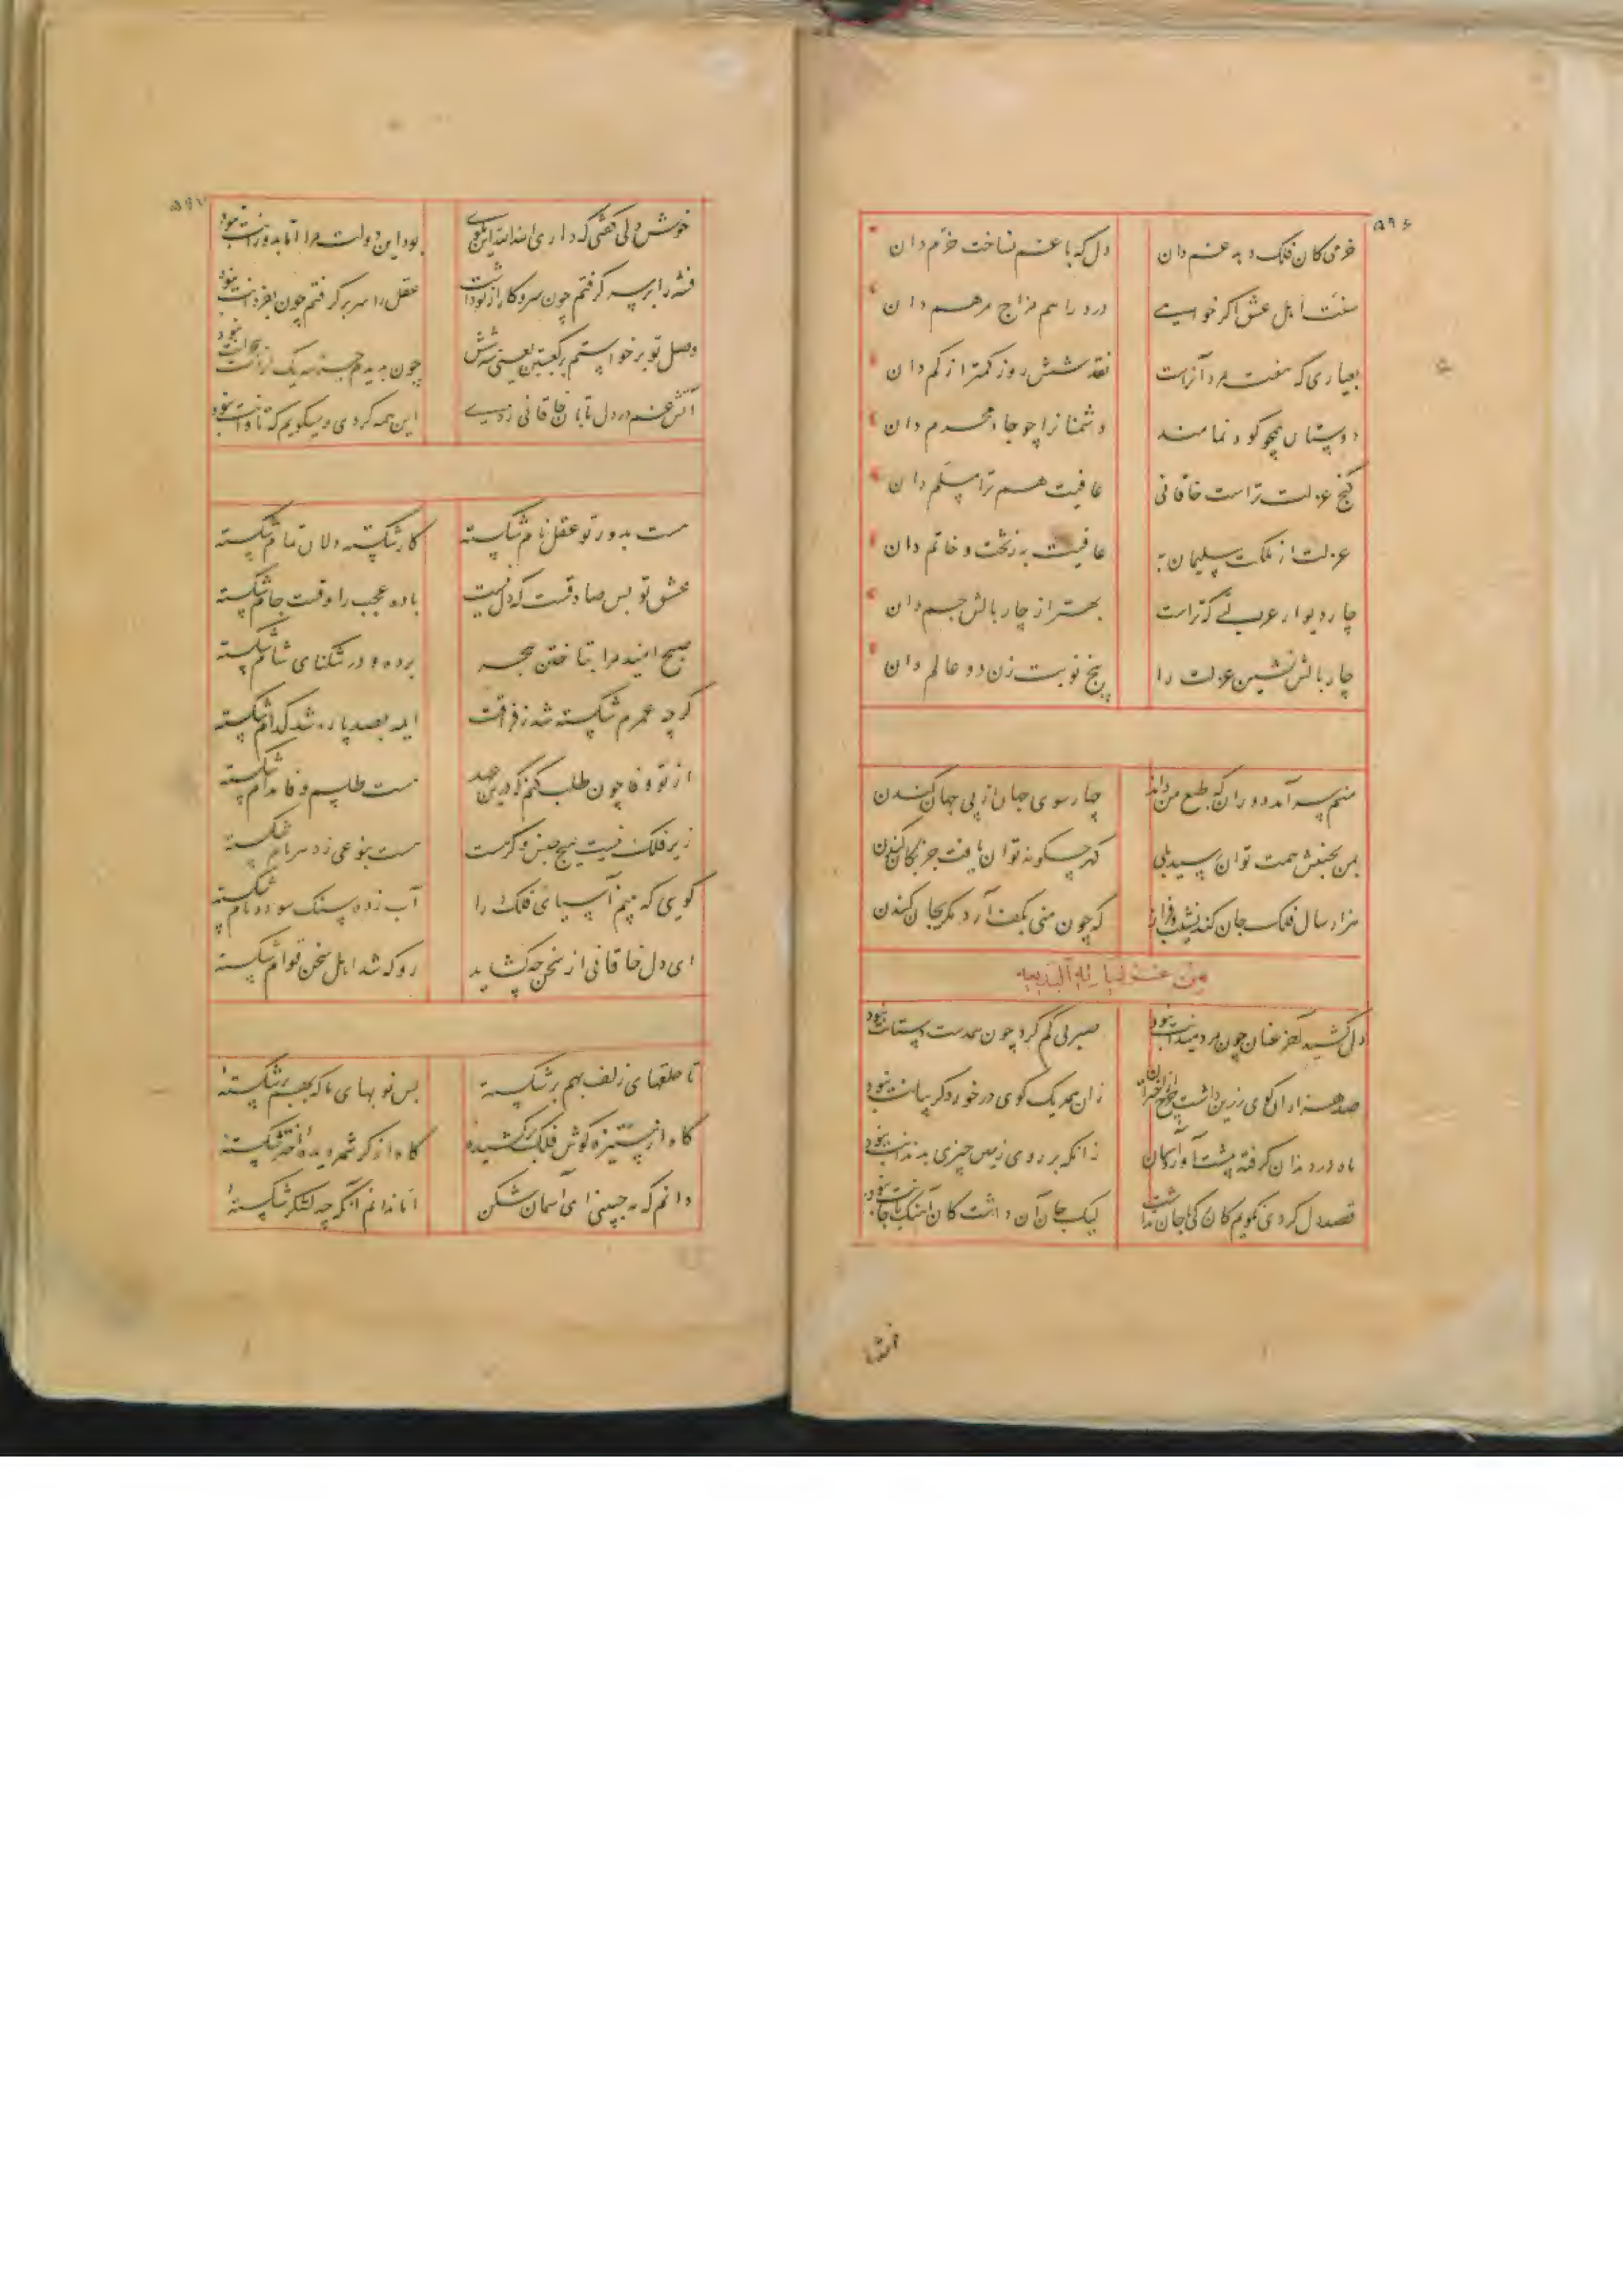 ۵۹۶
خرمی کان فلک دهد غم دان دل که با غم نساخت خرم دان
سنت اهل عشق اگر خواهی درد را هم مزاج مرهم دان
بعیاری که هفت مرد آنراست نقد شش روز کمتر از کم دان
دوستان همچو کود نمامند دشمنانرا چو جا محرم دان
گنج عزلت تراست خاقانی عافیت هم ترا مسلم دان
عزلت از ملکت سلیمان به عافیت به ز تخت و خاتم دان
چار دیوار عزلتی که تراست بهتر از چار بالش جم دان
چار بالش نشین عزلت را پنج نوبت زن دو عالم دان
منم سرآمد دوران که طبع من داند چارسوی جهان از پی جهان کندن
بمن بجنبش همت توان رسید بلی گهر چگونه توان یافت جز بکان کندن
هزار سال فلک جان کند نشیب و فراز که چون منی بکف آرد مگر بجان کندن
من غزلیاته البدیعه
دل کشید آخر عنان چون مرد میدانت نبود صبر پی گم کرد چون همدست دستانت نبود
صد هزاران گوی زرین داشت چرخ از اختران زان همه یک گوی در خورد گریبانت نبود
ماه در دندان گرفته پشت آورد آسمان زانکه بر روی زمین چیزی به دندانت نبود
قصد دل کردی نگویم کان رگی با جان نداشت لیک جان آن داشت کان آهنگ با جانت نبود
۵۹۷
خوش دلی گفتی که داری الله الله این مگوی بود این دولت مرا اما بدورانت نبود
فتنه را برسر گرفتم چون سر و کار از تو داشت عقل را سر برگرفتم چون بفرمانت نبود
وصل تو برخواستم از کعبتین یعنی سه شش چون بدیدم جز سه یک از دست هجرانت نبود
آتش غم در دل تابان خاقانی زدی این همه کردی و میگویم که تاوانت نبود
هست بدور تو عقل نام شکسته کار شکسته دلان تمام شکسته
عشق تو بس صادقست آه که دل نیست باده عجب را وقت جام شکسته
صبح امید مرا بتاختن هجر برده و در تنگنای شام شکسته
گرچه عمرم شکسته شد ز فراقت ایمه بصد پاره شد کدام شکسته
از تو وفا چون طلب کنم که درین عهد هست طلسم وفا مدام شکسته
زیر فلک نیست هیچ جنس و گر هست هست بنوعی ز دهر نام شکسته
گویی که بینم آسیای فلک را آب زده سنگ سوده بام شکسته
ای دل خاقانی از سخن چه گشاید رو که شد اهل سخن قوام شکسته
تا حلقهای زلف بهم برشکسته بس توبهای ما که بهم برشکستهٔ
گاه از ستیزه گوش فلک برکشیدهٔ گاه از کرشمه دیدهٔ اختر شکستهٔ
دانم که مه جبینی ای آسمان شکن اما ندانم آنکه چه لشکر شکستهٔ
فتنه را